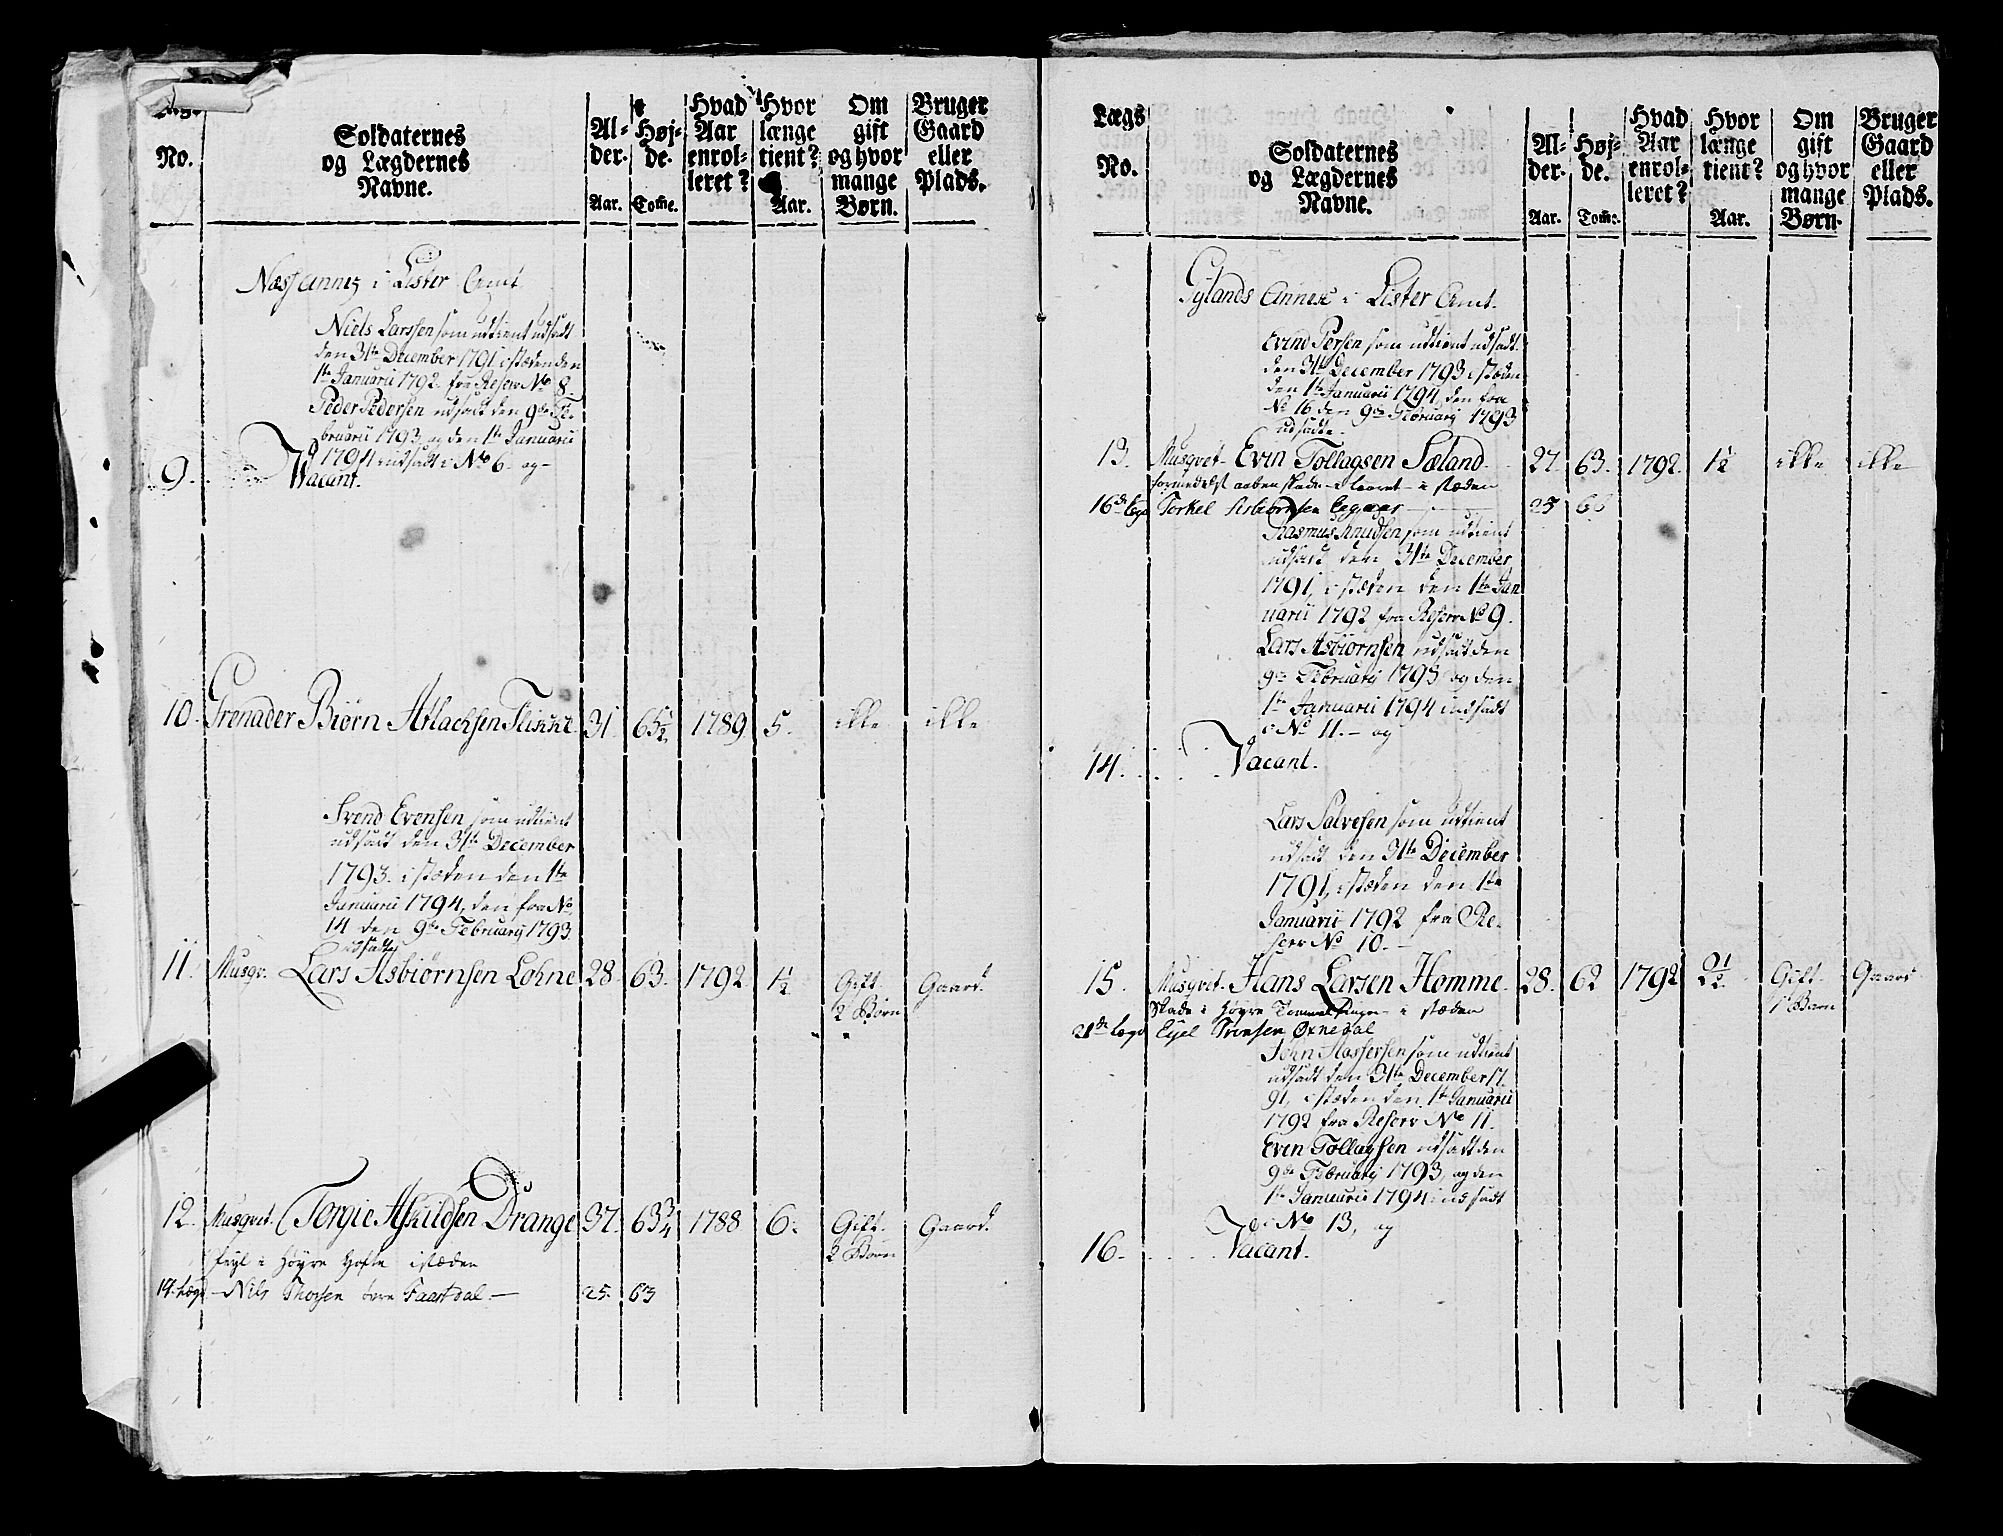 No.
Soldaternes
og Lægdernes
Navne.
Al-
der.
Aar.
Høj-
de.
Tomme.
Hvad
Aar
enrol-
leret?
Hvor
længe
tient?
Aar.
Om
gift
og hvor
mange
Børn.
Bruger
Gaard
eller
Plads.
Næss Annex i Lister Amt.
Niels Larssen som udtient udsadt
den 31te December 1791 i stæden den
1te Januarii 1792 fra Reserv No 8.
Peder Pedersen udsadt den 9de Fe-
bruarii 1793, og den 1te Januarii
1794 indsadt i No 6. og
9. Vacant.
10. Grenader Biørn Atlachsen 31 65½ 1789 5. ikke ikke
Svend Evensen som udtient
udsadt den 31te December
1793. i stæden den 1te
Januarii 1794, den fra No
14 den 9de Februarij 1793
udsadte
11. Musqv. Lars Asbiørnsen Lohne 28. 63. 1792 1½ Gift. Gaard.
2 Børn
12. Musqvet. Torgie Askildsen Drange 37. 63¾ 1788 6. Gift. Gaard.
2 Børn
feyl i Høyre Hofte i stæden
14. Lægd Nils Thorsen 25. 63
Lægs
No.
Soldaternes
og Lægdernes
Navne.
Al-
der.
Aar.
Høj-
de.
Tomme.
Hvad
Aar
enrol-
leret?
Hvor
længe
tient?
Aar.
Om
gift
og hvor
mange
Børn.
Bruger
Gaard
eller
Plads.
Gylands Annex i Lister Amt.
Evind Persen som udtient udsadt.
den 31te December 1793 i stæden
den 1te Januarii 1794, den fra
No 16 den 9de Februarij 1793
udsadte
13. Musqvet Evin Tollagsen Sæland. 27. 63. 1792. 1½ ikke ikke
formedelst aaben skade i Laaret i stæden
16de Lægd Torkel Asbiørnsen 25 66
Rasmus Knudsen som udtient
udsadt den 31te December
1791, i stæden den 1te Jan
uarii 1792 fra Reserv No 9.
Lars Asbiørnsen udsadt den
9de Februarij 1793 og den
1te Januarii 1794 indsadt
i No 11. og
14. Vacant.
Lars Salvesen som udtient
udsadt den 31te December
1791, i stæden den 1te
Januarii 1792 fra Re-
serv No 10.
15. Musqvet. Hans Larsen Homme. 28. 62 1792 2½ Gift. Gaard
1 Barn
Skade i høyre Tommelfinger i stæden
21de Lægd Eyel Svensen Oxnedal
John Aassersen som udtient
udsadt den 31te December 17
91, i stæden den 1te Januarii
1792 fra Reserv No 11.
Even Tollagsen udsadt den
9de Februarij 1793, og den
1te Januarii 1794 indsadt
i No 13, og
16. Vacant.